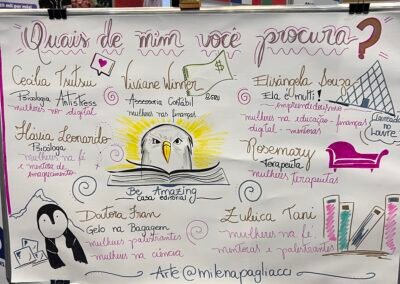 Quais de mim você procura?
Cecilia Tsutsui
Psicologia Antistress
mulheres na digital
Viviane Winner
Assessoria Contábil
mulheres nas finanças
$
Elisângela Souza
Ela é multi!
empreendedorismo
mulheres na educação - finanças
digital - mentoras
Clareado no
Louvre
Flávia Leonardo
Psicóloga
mulheres na fé
e mentora de
emagrecimento
Rosemary
Terapeuta
mulheres terapeutas
Be Amazing
Casa editorial
Datora Fran
Gelo na Bagagem
mulheres palestrantes
mulheres na ciência
Zuleica Tani
mulheres na fé.
mentoras e palestrantes
Arte@milenapagliacci